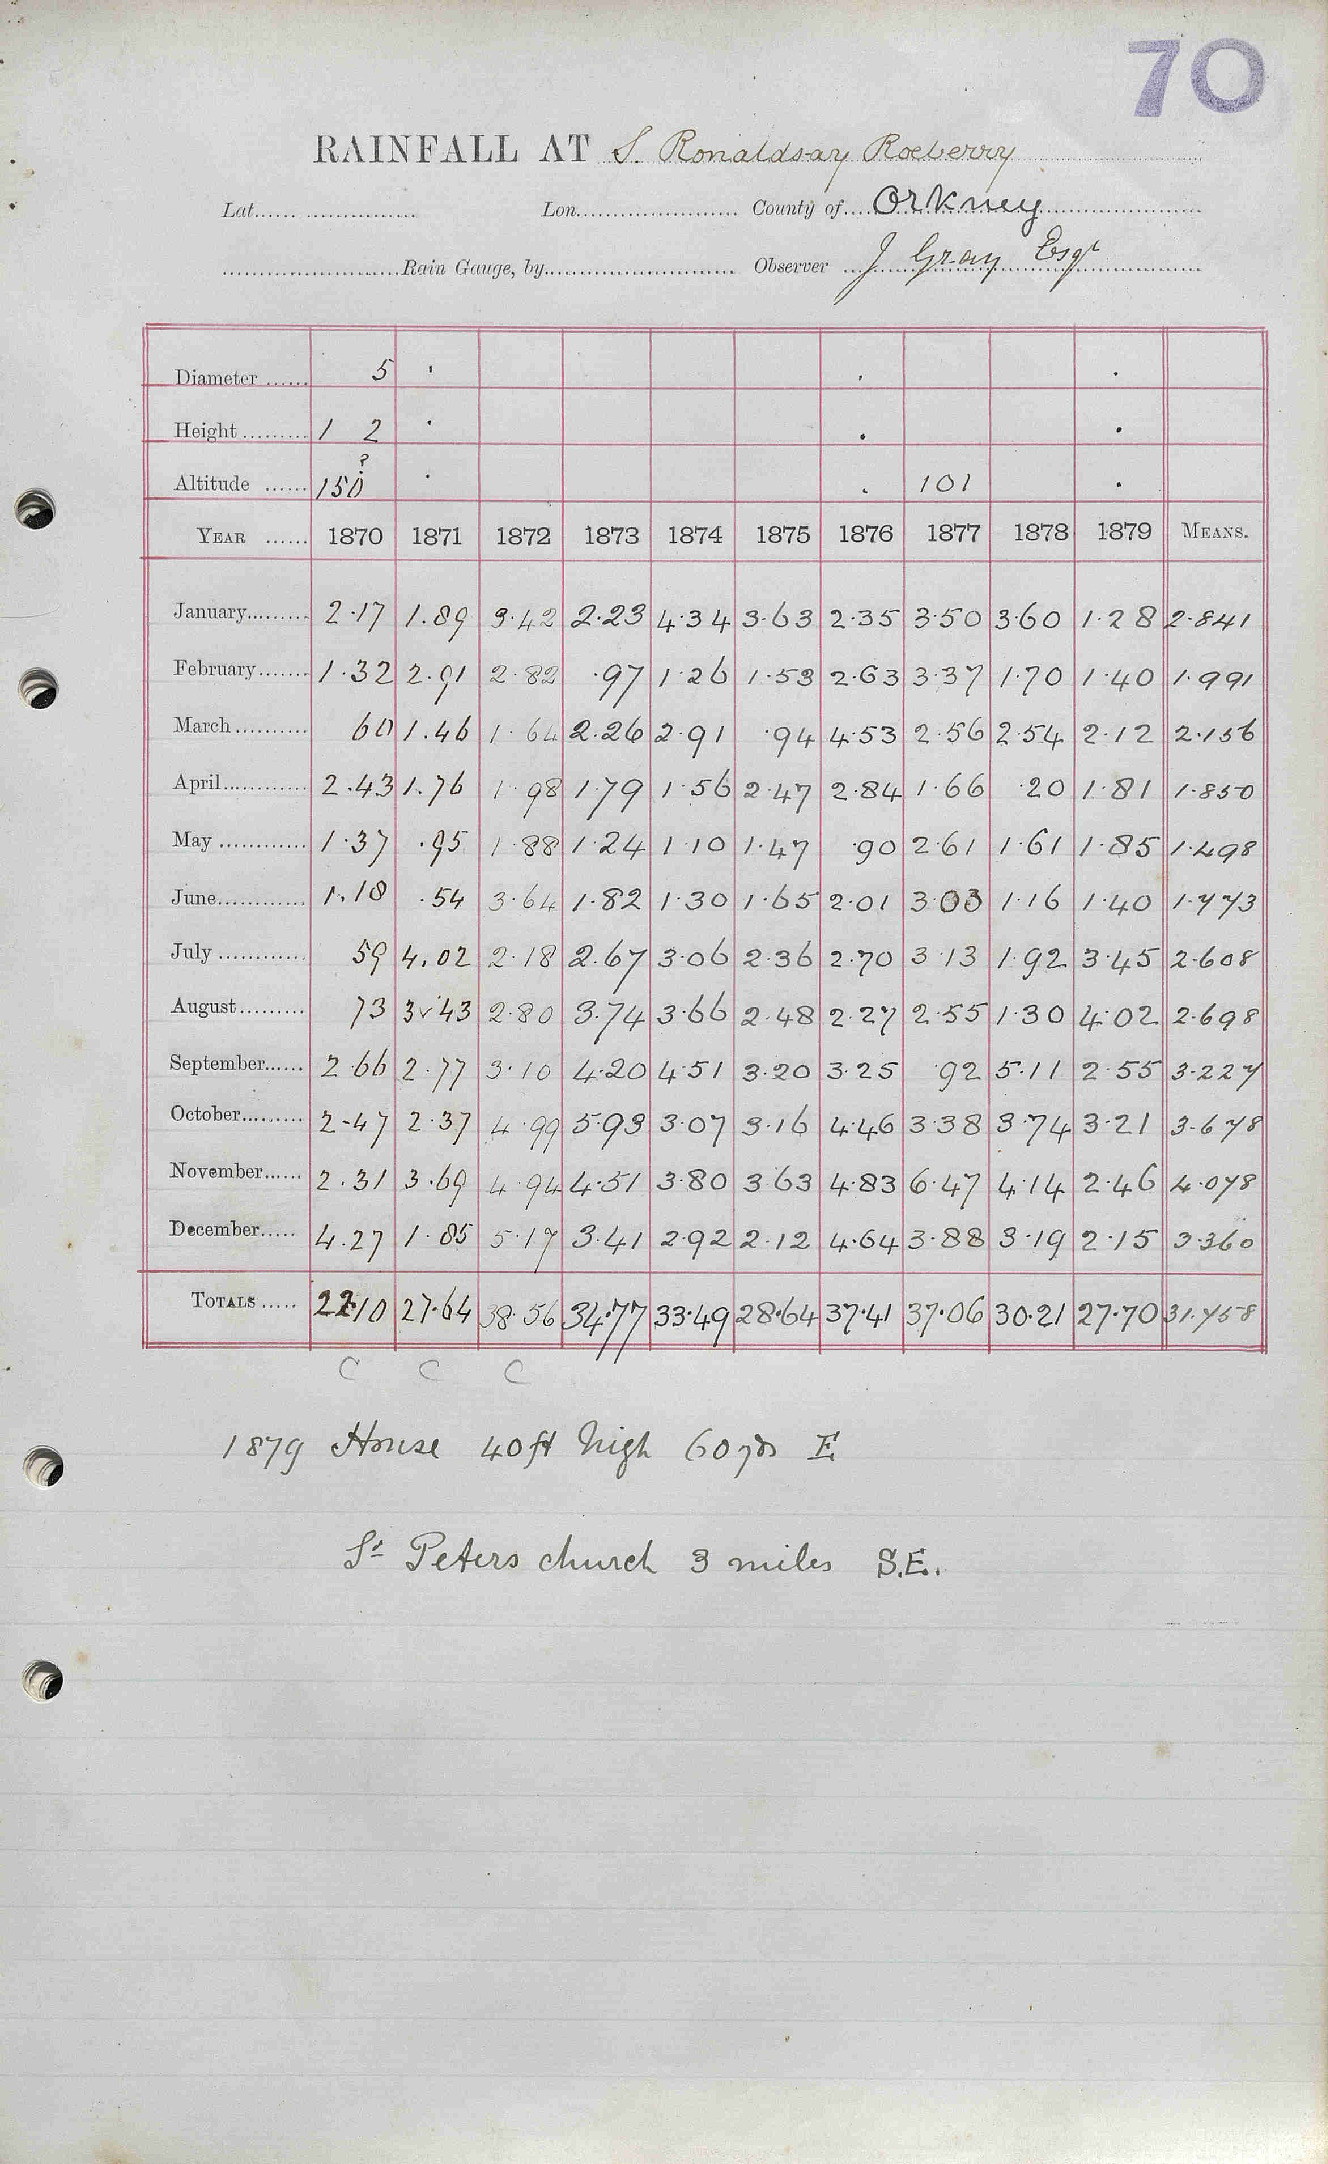 70
RAINFALL AT S. Ronaldsay Roeberry
Lat. Lon. County of Orkney
Rain Gauge, by Observer J Gray Esqr
Diameter 5
Height 1 2
Altitude 150 ? 101
YEAR 1870 1871 1872 1873 1874 1875 1876 1877 1878 1879 MEANS.
January 2.17 1.89 3.42 2.23 4.34 3.63 2.35 3.50 3.60 1.28 2.841
February 1.32 2.91 2.82 .97 1.26 1.53 2.63 3.37 1.70 1.40 1.991
March 60 1.46 1.64 2.26 2.91 .94 4.53 2.56 2.54 2.12 2.156
April 2.43 1.76 1.98 1.79 1.56 2.47 2.84 1.66 .20 1.81 1.850
May 1.37 .95 1.88 1.24 1.10 1.47 .90 2.61 1.61 1.85 1.498
June 1.18 .54 3.64 1.82 1.30 1.65 2.01 3.03 1.16 1.40 1.773
July 59 4.02 2.18 2.67 3.06 2.36 2.70 3.13 1.92 3.45 2.608
August 73 3.43 2.80 3.74 3.66 2.48 2.27 2.55 1.30 4.02 2.698
September 2.66 2.77 3.10 4.20 4.51 3.20 3.25 .92 5.11 2.55 3.227
October 2.47 2.37 4.99 5.93 3.07 3.16 4.46 3.38 3.74 3.21 3.678
November 2.31 3.69 4.94 4.51 3.80 3.63 4.83 6.47 4.14 2.46 4.078
December 4.27 1.85 5.17 3.41 2.92 2.12 4.64 3.88 3.19 2.15 3.360
TOTALS 22.10 27.64 38.56 34.77 33.49 28.64 37.41 37.06 30.21 27.70 31.758
C C C
1879 House 40ft high 60yds E
St Peters church 3 miles S.E.